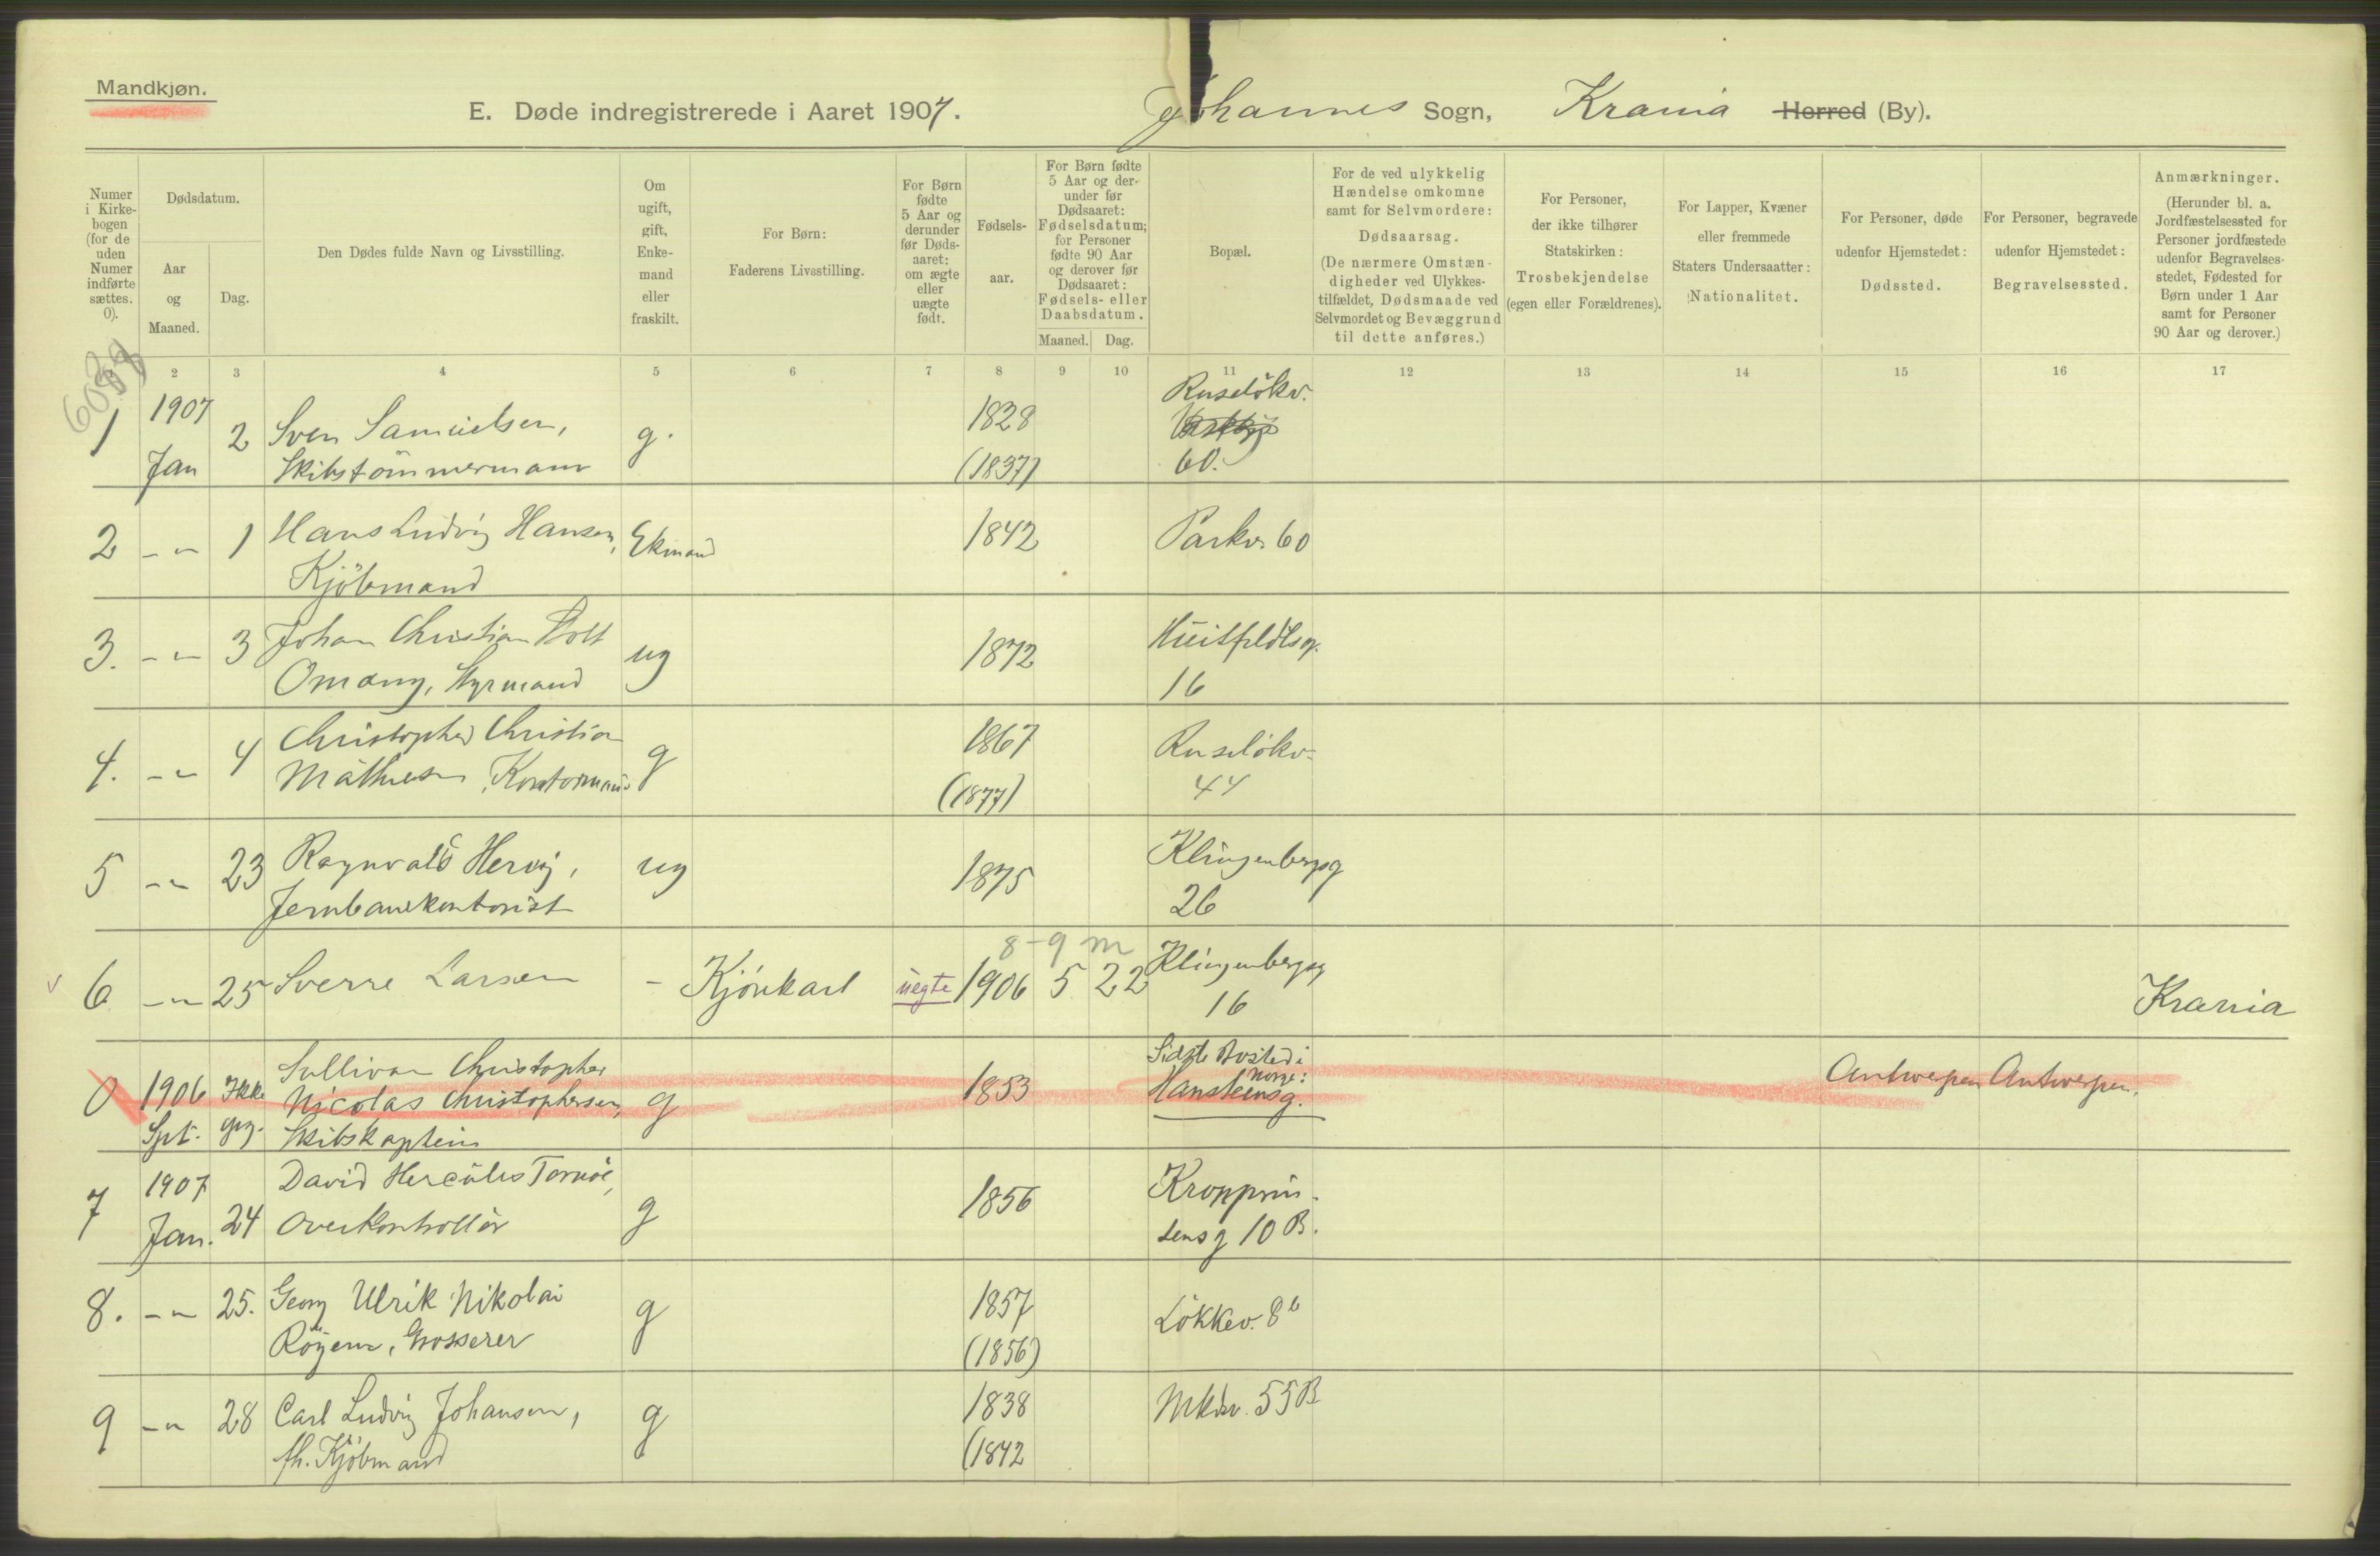 Mandkjøn.
E. Døde indregistrerede i Aaret 1907. Johannes Sogn, Krania Herred (By).
Numer i Kirkebogen (for de uden Numer indførte sættes. 0).
Dødsdatum.
Aar og Maaned.
Dag.
Den Dødes fulde Navn og Livsstilling.
Om ugift, gift, Enkemand eller fraskilt.
For Børn: Faderens Livsstilling.
For Børn fødte 5 Aar og derunder før Dødsaaret: om ægte eller uægte født.
Fødselsaar.
For Børn fødte 5 Aar og derunder før Dødsaaret: Fødselsdatum; for Personer fødte 90 Aar og derover før Dødsaaret: Fødsels- eller Daabsdatum.
Maaned. Dag.
Bopæl.
For de ved ulykkelig Hændelse omkomne samt for Selvmordere: Dødsaarsag. (De nærmere Omstændigheder ved Ulykkestilfældet, Dødsmaade ved Selvmordet og Bevæggrund til dette anføres.)
For Personer, der ikke tilhører Statskirken: Trosbekjendelse (egen eller Forældrenes).
For Lapper, Kvæner eller fremmede Staters Undersaatter: Nationalitet.
For Personer, døde udenfor Hjemstedet: Dødssted.
For Personer, begravede udenfor Hjemstedet: Begravelsessted.
Anmærkninger. (Herunder bl. a. Jordfæstelsessted for Personer jordfæstede udenfor Begravelsesstedet, Fødested for Børn under 1 Aar samt for Personer 90 Aar og derover.)
2 3 4 5 6 7 8 9 10 11 12 13 14 15 16 17
1 1907 Jan 2 Sven Samuelsen, Skibstömmermann g. 1828 (1837) Ruselökv. 60.
2 -"- 1 Hans Ludvig Hansen, Kjöbmand Ekmand 1842 Parkv. 60
3. -"- 3 Johan Christian Holt Omang, Styrmand ug 1872 Huitfeldtsg. 16
4. -"- 4 Christopher Christian Mathiesen, Kontormand g 1867 (1877) Ruselökv. 44
5 -"- 23 Ragnvald Hervig, Jernbanekontorist ug 1875 Klingenbergsg 26
6 -"- 25 Sverre Larsen - Kjörekarl uegte 1906 5 22 Klingenbergsg 16 Krania
8-9 m
0 1906 Spt. Ikke opg. Sullivan Christopher Nicolas Christophersen, Skibskaptein g 1853 Sidste Bosted i Norge: Hansteensg. Antwerpen Antwerpen.
7 1907 Jan. 24 David Hercules Tornöe, Overkontrollör g 1856 Kronprinsensg 10 B.
8. -"- 25. Georg Ulrik Nikolai Röyem, Grosserer g 1857 (1856) Lökkev. 8b
9 -"- 28 Carl Ludvig Johansen, fh. Kjöbmand g 1838 (1842 Mkdv. 55B